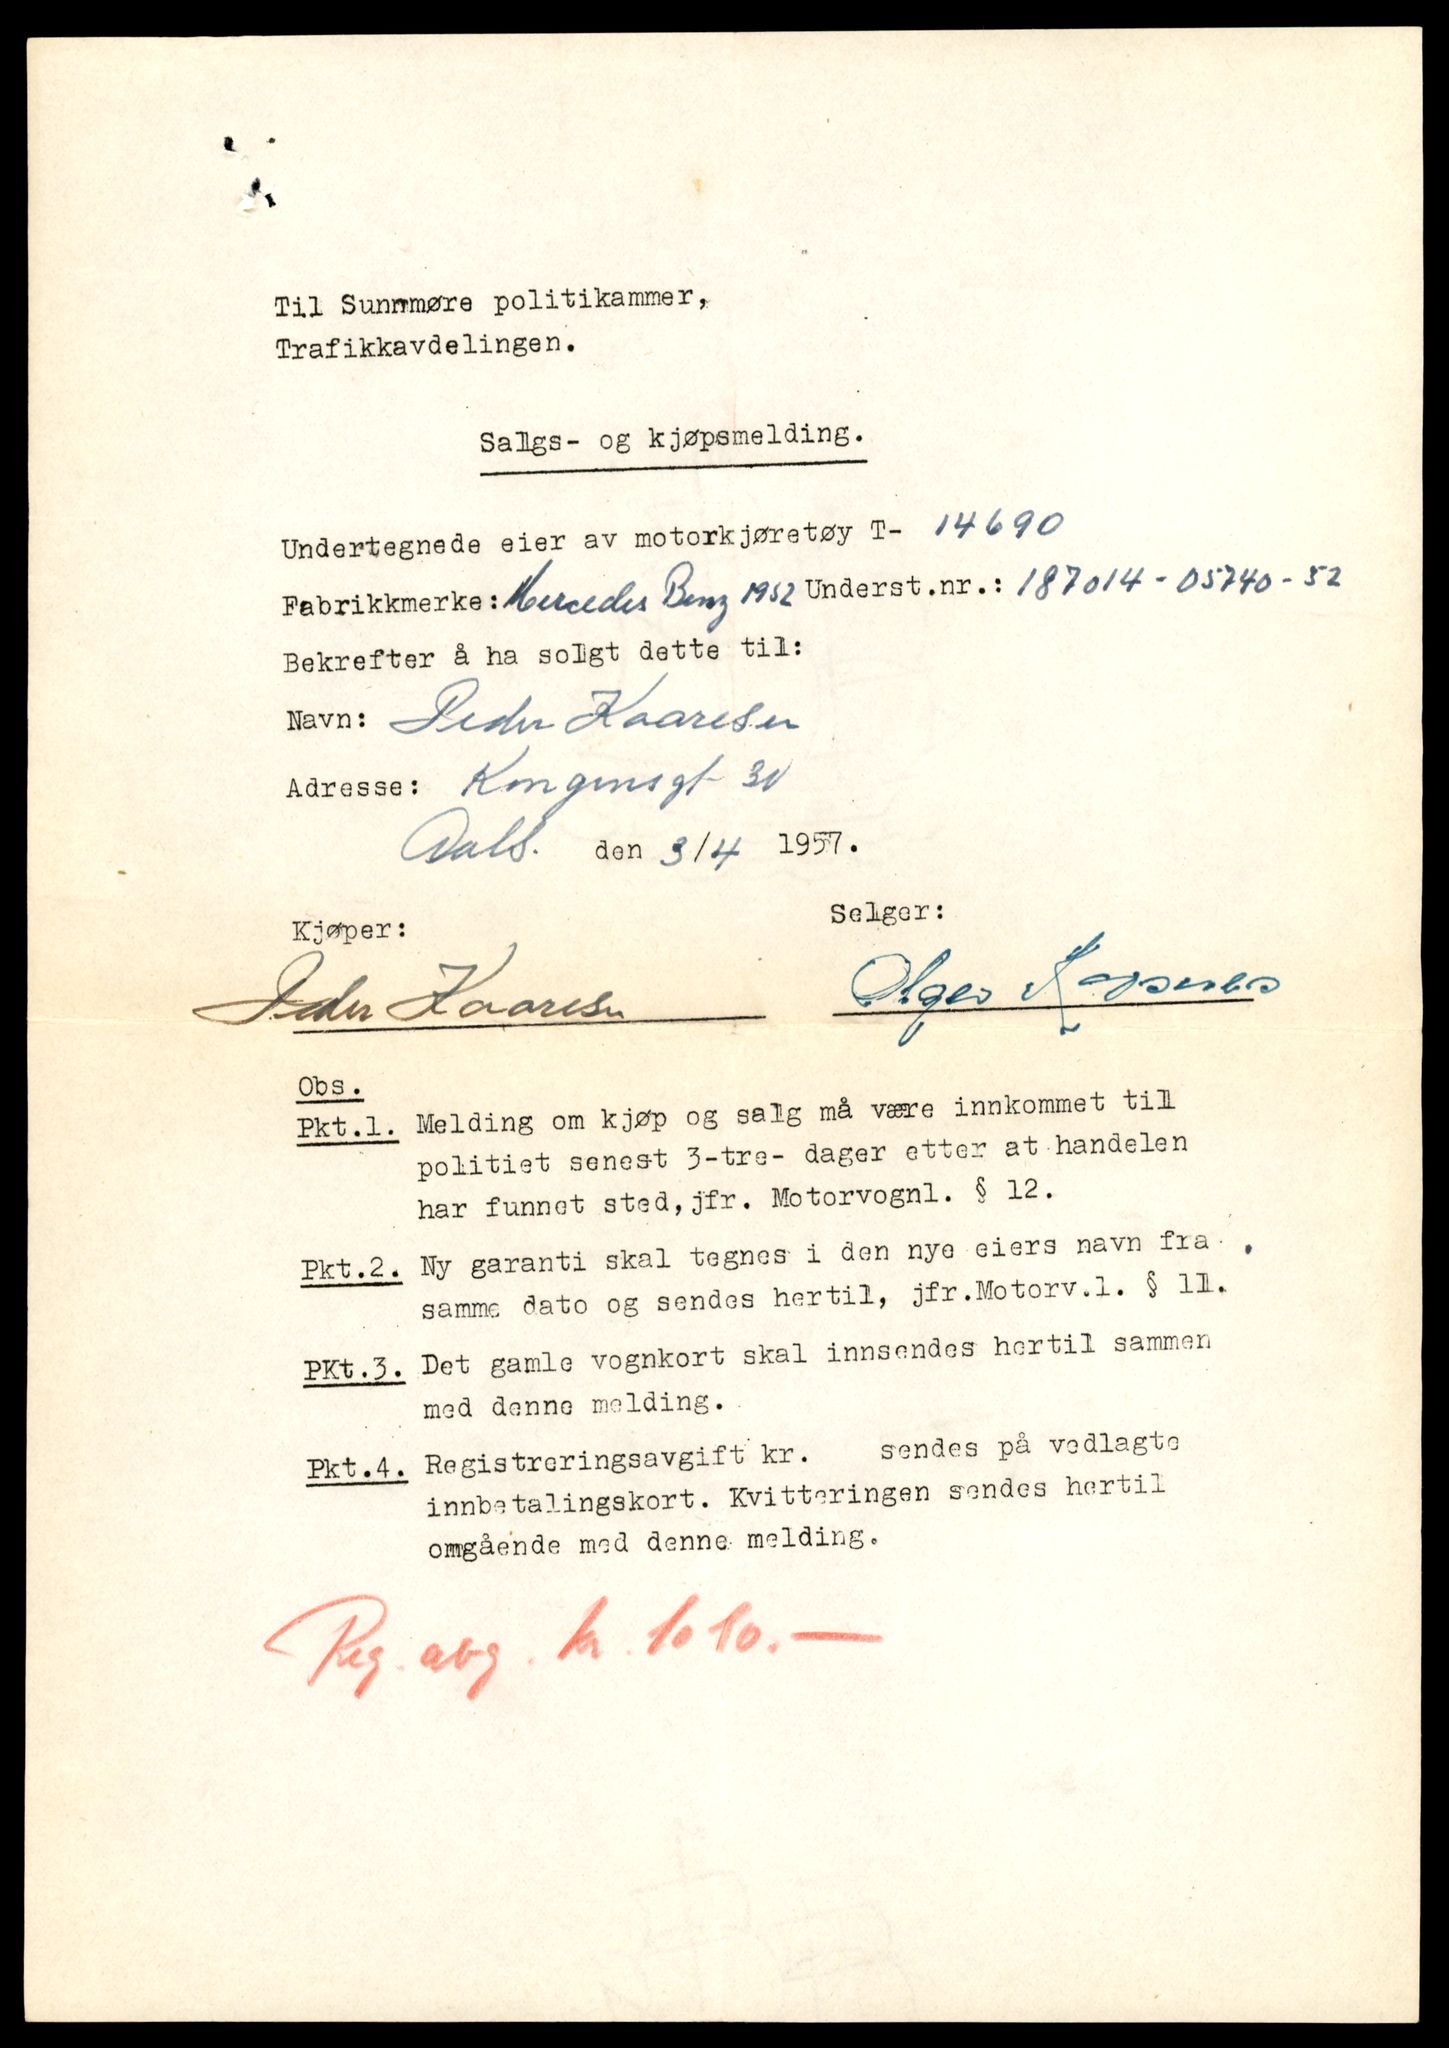 Til Sunnmøre politikammer,
Trafikkavdelingen.
Salgs- og kjøpsmelding.
Undertegnede eier av motorkjøretøy T- 14690
Fabrikkmerke: Mercedes Benz 1952 Underst.nr.: 187014-05740-52
Bekrefter å ha solgt dette til:
Navn: Peder Kaaresen
Adresse: Kongensgt 30
Aals. den 3/4 1957.
Kjøper: Selger:
Peder Kaaresen
Obs.
Pkt.1. Melding om kjøp og salg må være innkommet til
politiet senest 3-tre- dager etter at handelen
har funnet sted, jfr. Motorvognl. § 12.
Pkt.2. Ny garanti skal tegnes i den nye eiers navn fra
samme dato og sendes hertil, jfr.Motorv.l. § 11.
PKt.3. Det gamle vognkort skal innsendes hertil sammen
med denne melding.
Pkt.4. Registreringsavgift kr. sendes på vedlagte
innbetalingskort. Kvitteringen sendes hertil
omgående med denne melding.
Reg. avg. kr. 1010.—